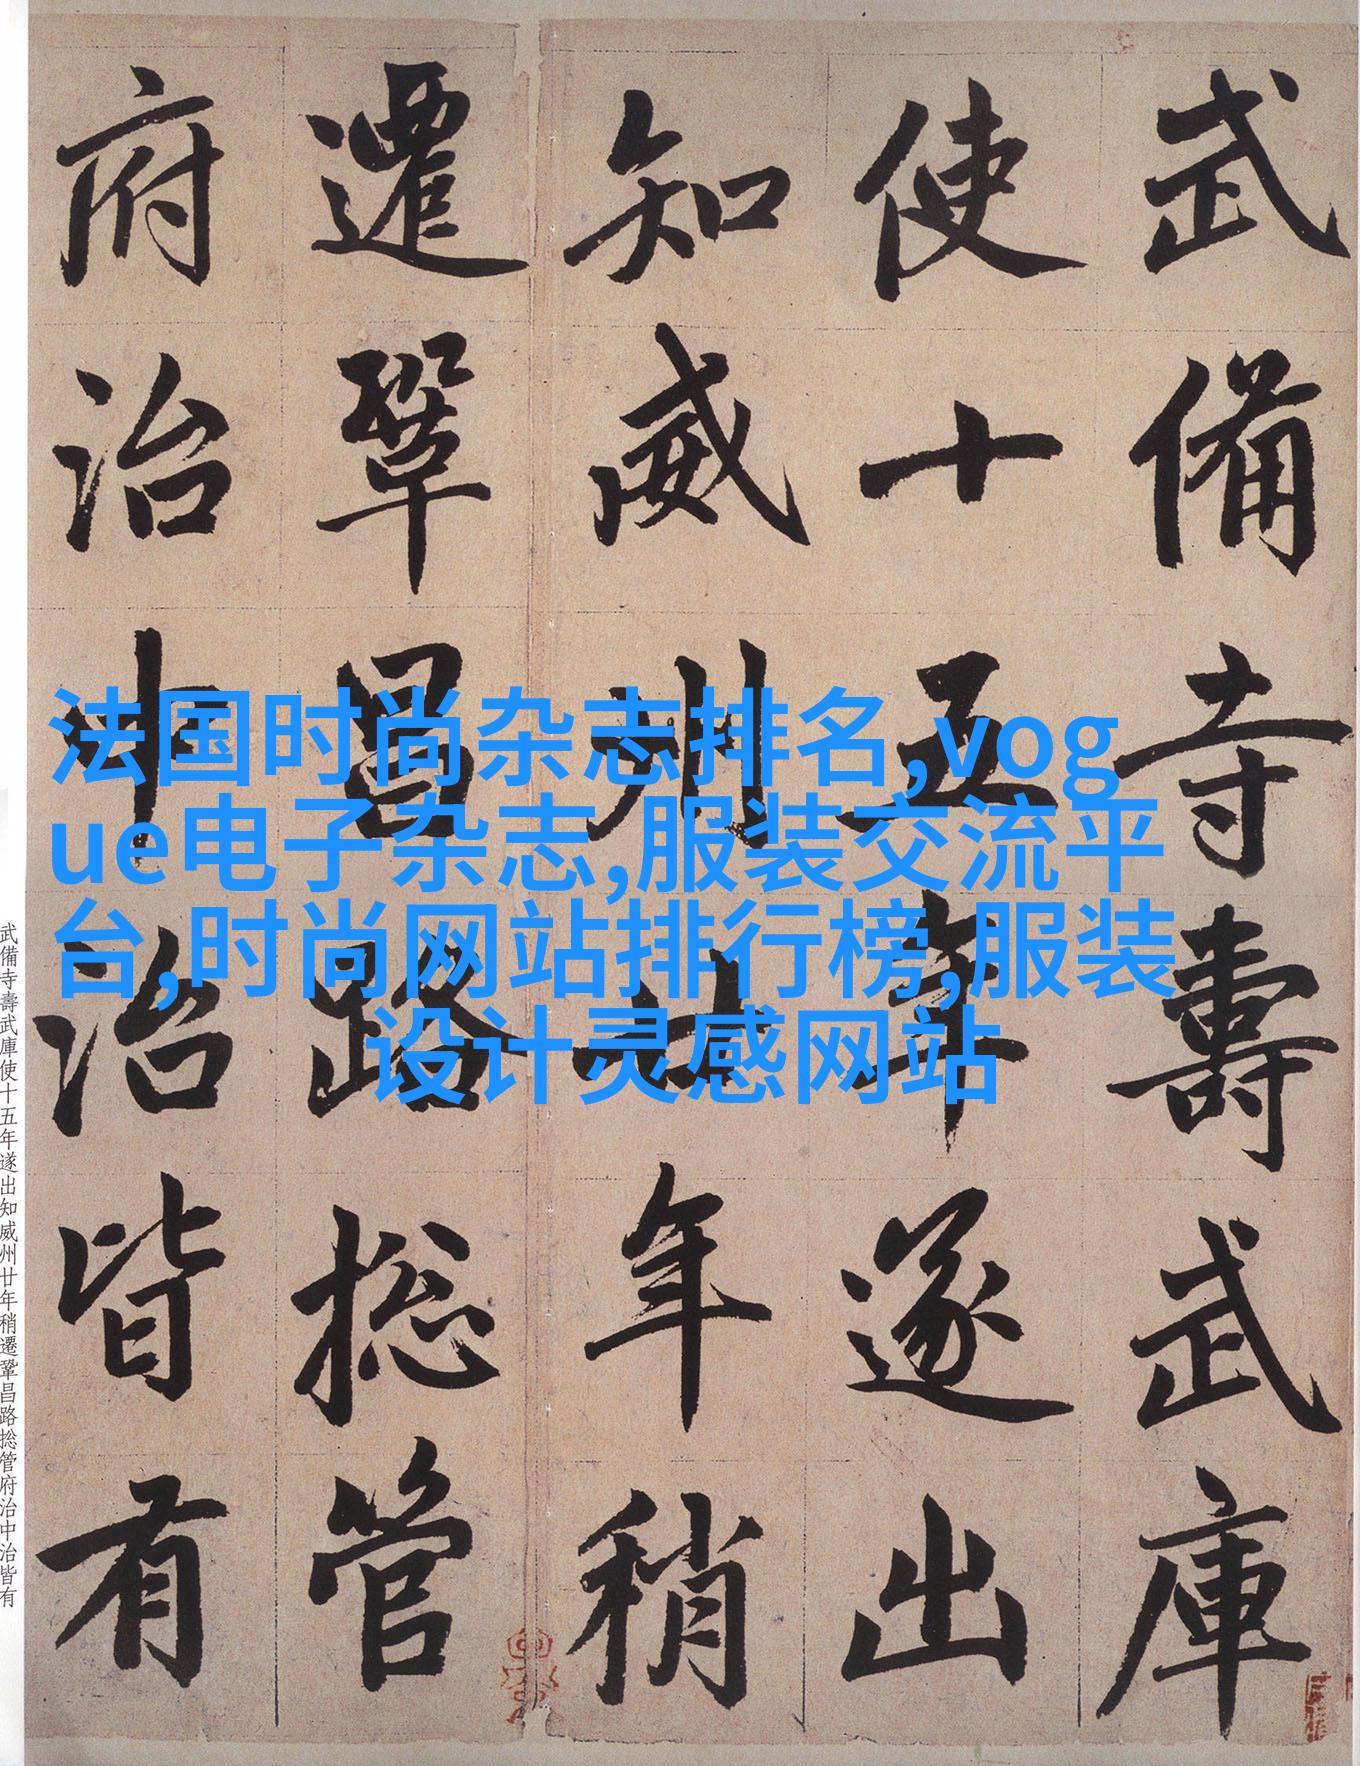 武備寺壽武庫
使十五年遂出
知威州廿年稍
遷鞏昌路捴管
府治中治皆有
法国时尚杂志排名,vog
ue电子杂志,服装交流平
台,时尚网站排行榜,服装
设计灵感网站
武備寺壽武庫使十五年遂出知威州廿年稍遷鞏昌路捴管府治中治皆有